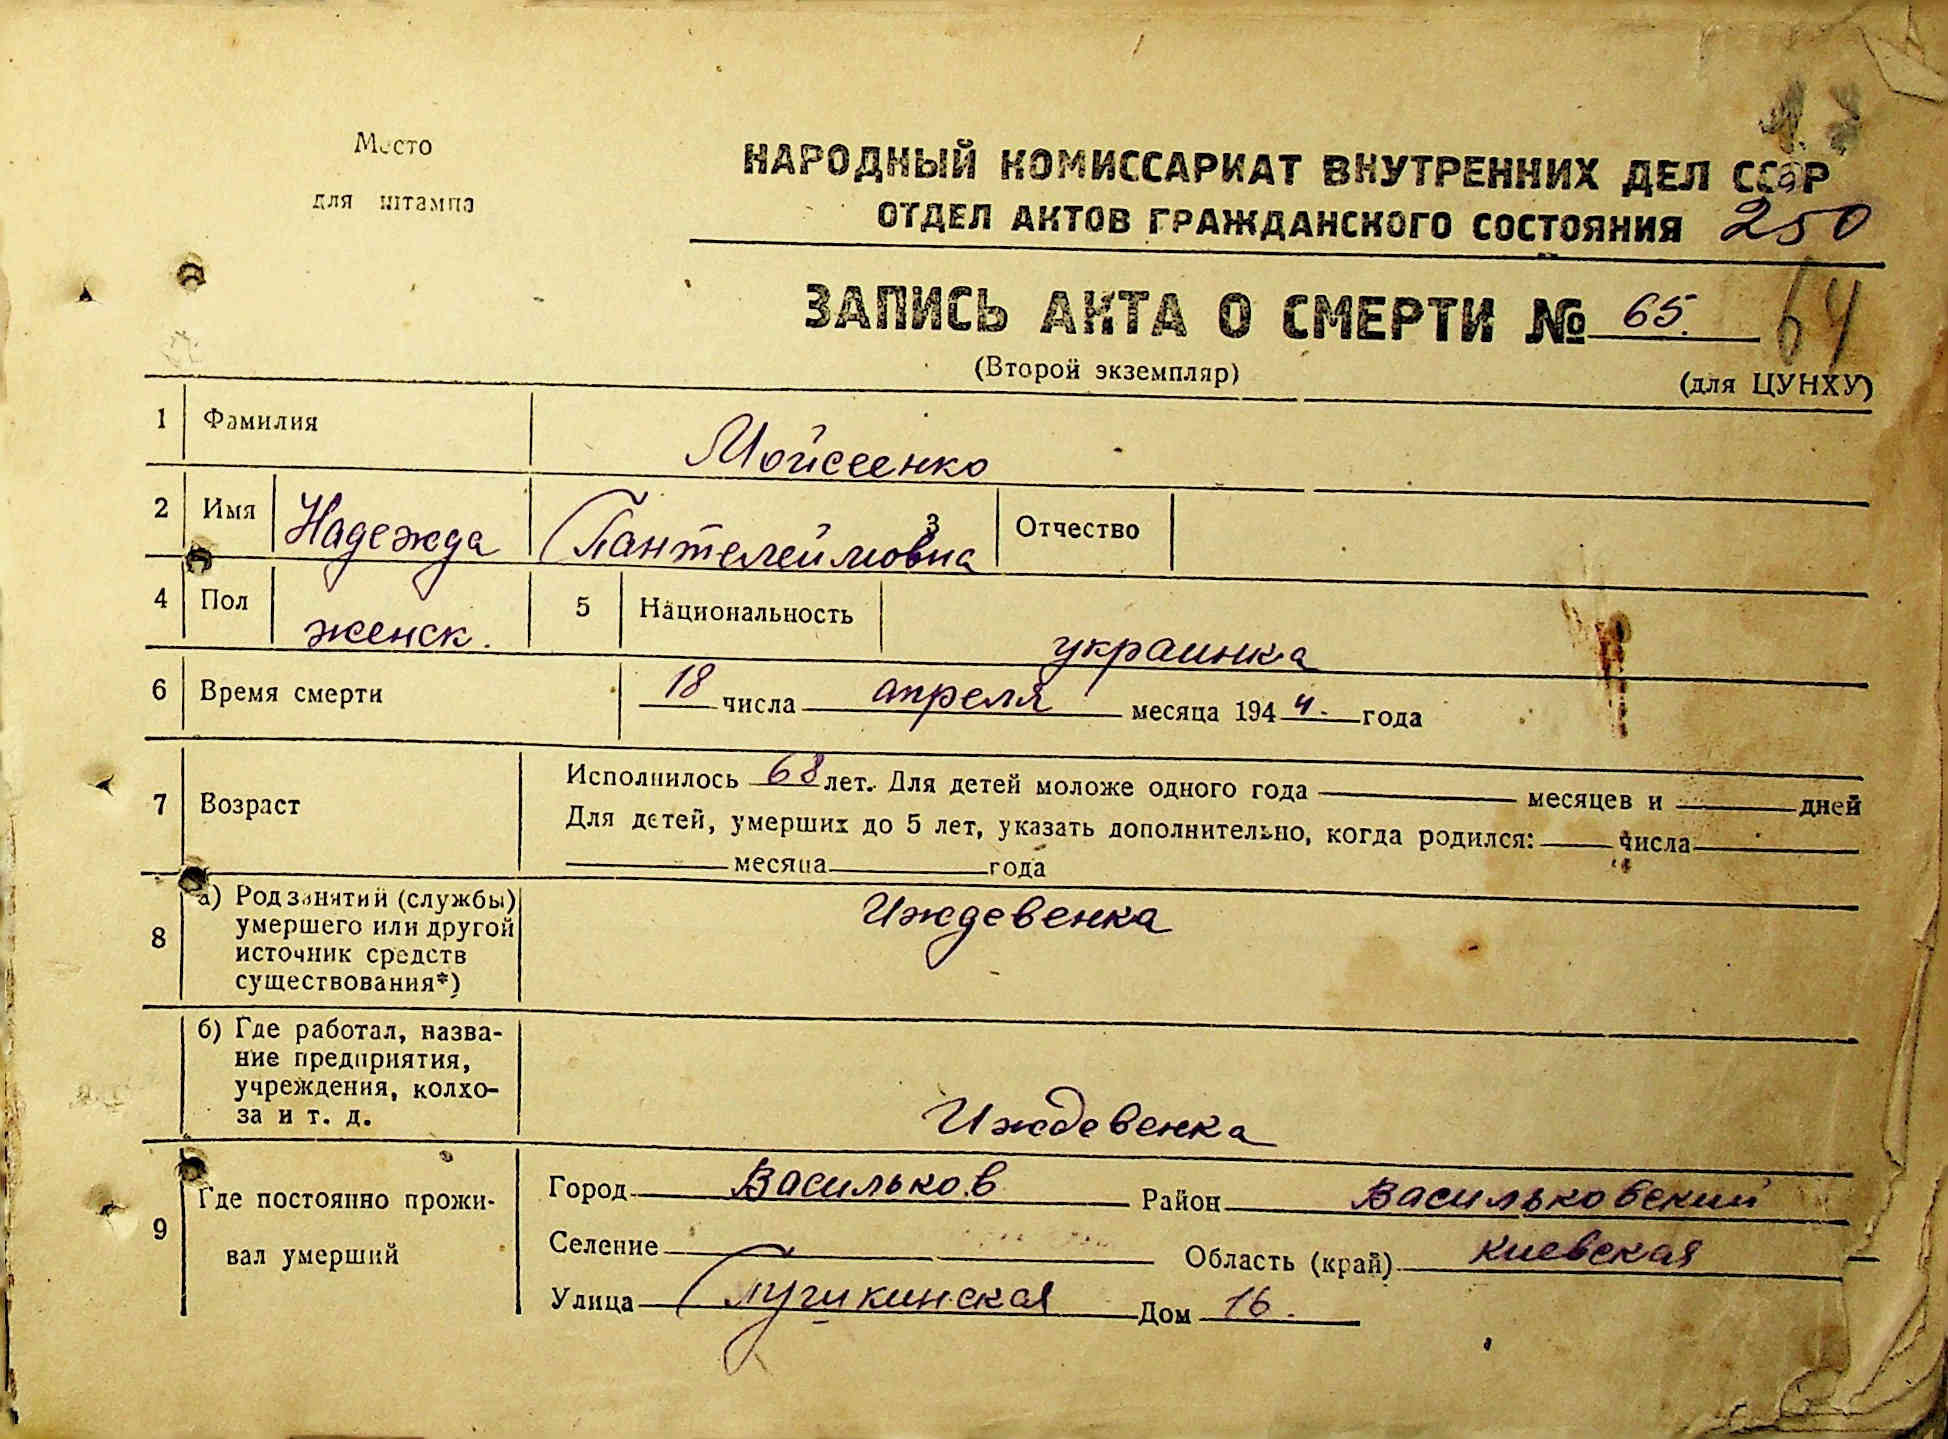 Место
для штампа
НАРОДНЫЙ КОМИССАРИАТ ВНУТРЕННИХ ДЕЛ СССР
ОТДЕЛ АКТОВ ГРАЖДАНСКОГО СОСТОЯНИЯ 250
ЗАПИСЬ АКТА О СМЕРТИ № 65. 64
(Второй экземпляр) (для ЦУНХУ)
1 Фамилия Мойсеенко
2 Имя Надежда Пантелеймовна 3 Отчество
4 Пол женск. 5 Национальность украинка
6 Время смерти 18 числа апреля месяца 1944. года
7 Возраст Исполнилось 68 лет. Для детей моложе одного года месяцев и дней
Для детей, умерших до 5 лет, указать дополнительно, когда родился: числа
месяца года
8 а) Род занятий (службы)
умершего или другой
источник средств
существования*)
Иждевенка
б) Где работал, назва-
ние предприятия,
учреждения, колхо-
за и т. д.
Иждевенка
9 Где постоянно прожи-
вал умерший
Город Васильков Район Васильковский
Селение Область (край) Киевская
Улица Пушкинская Дом 16.